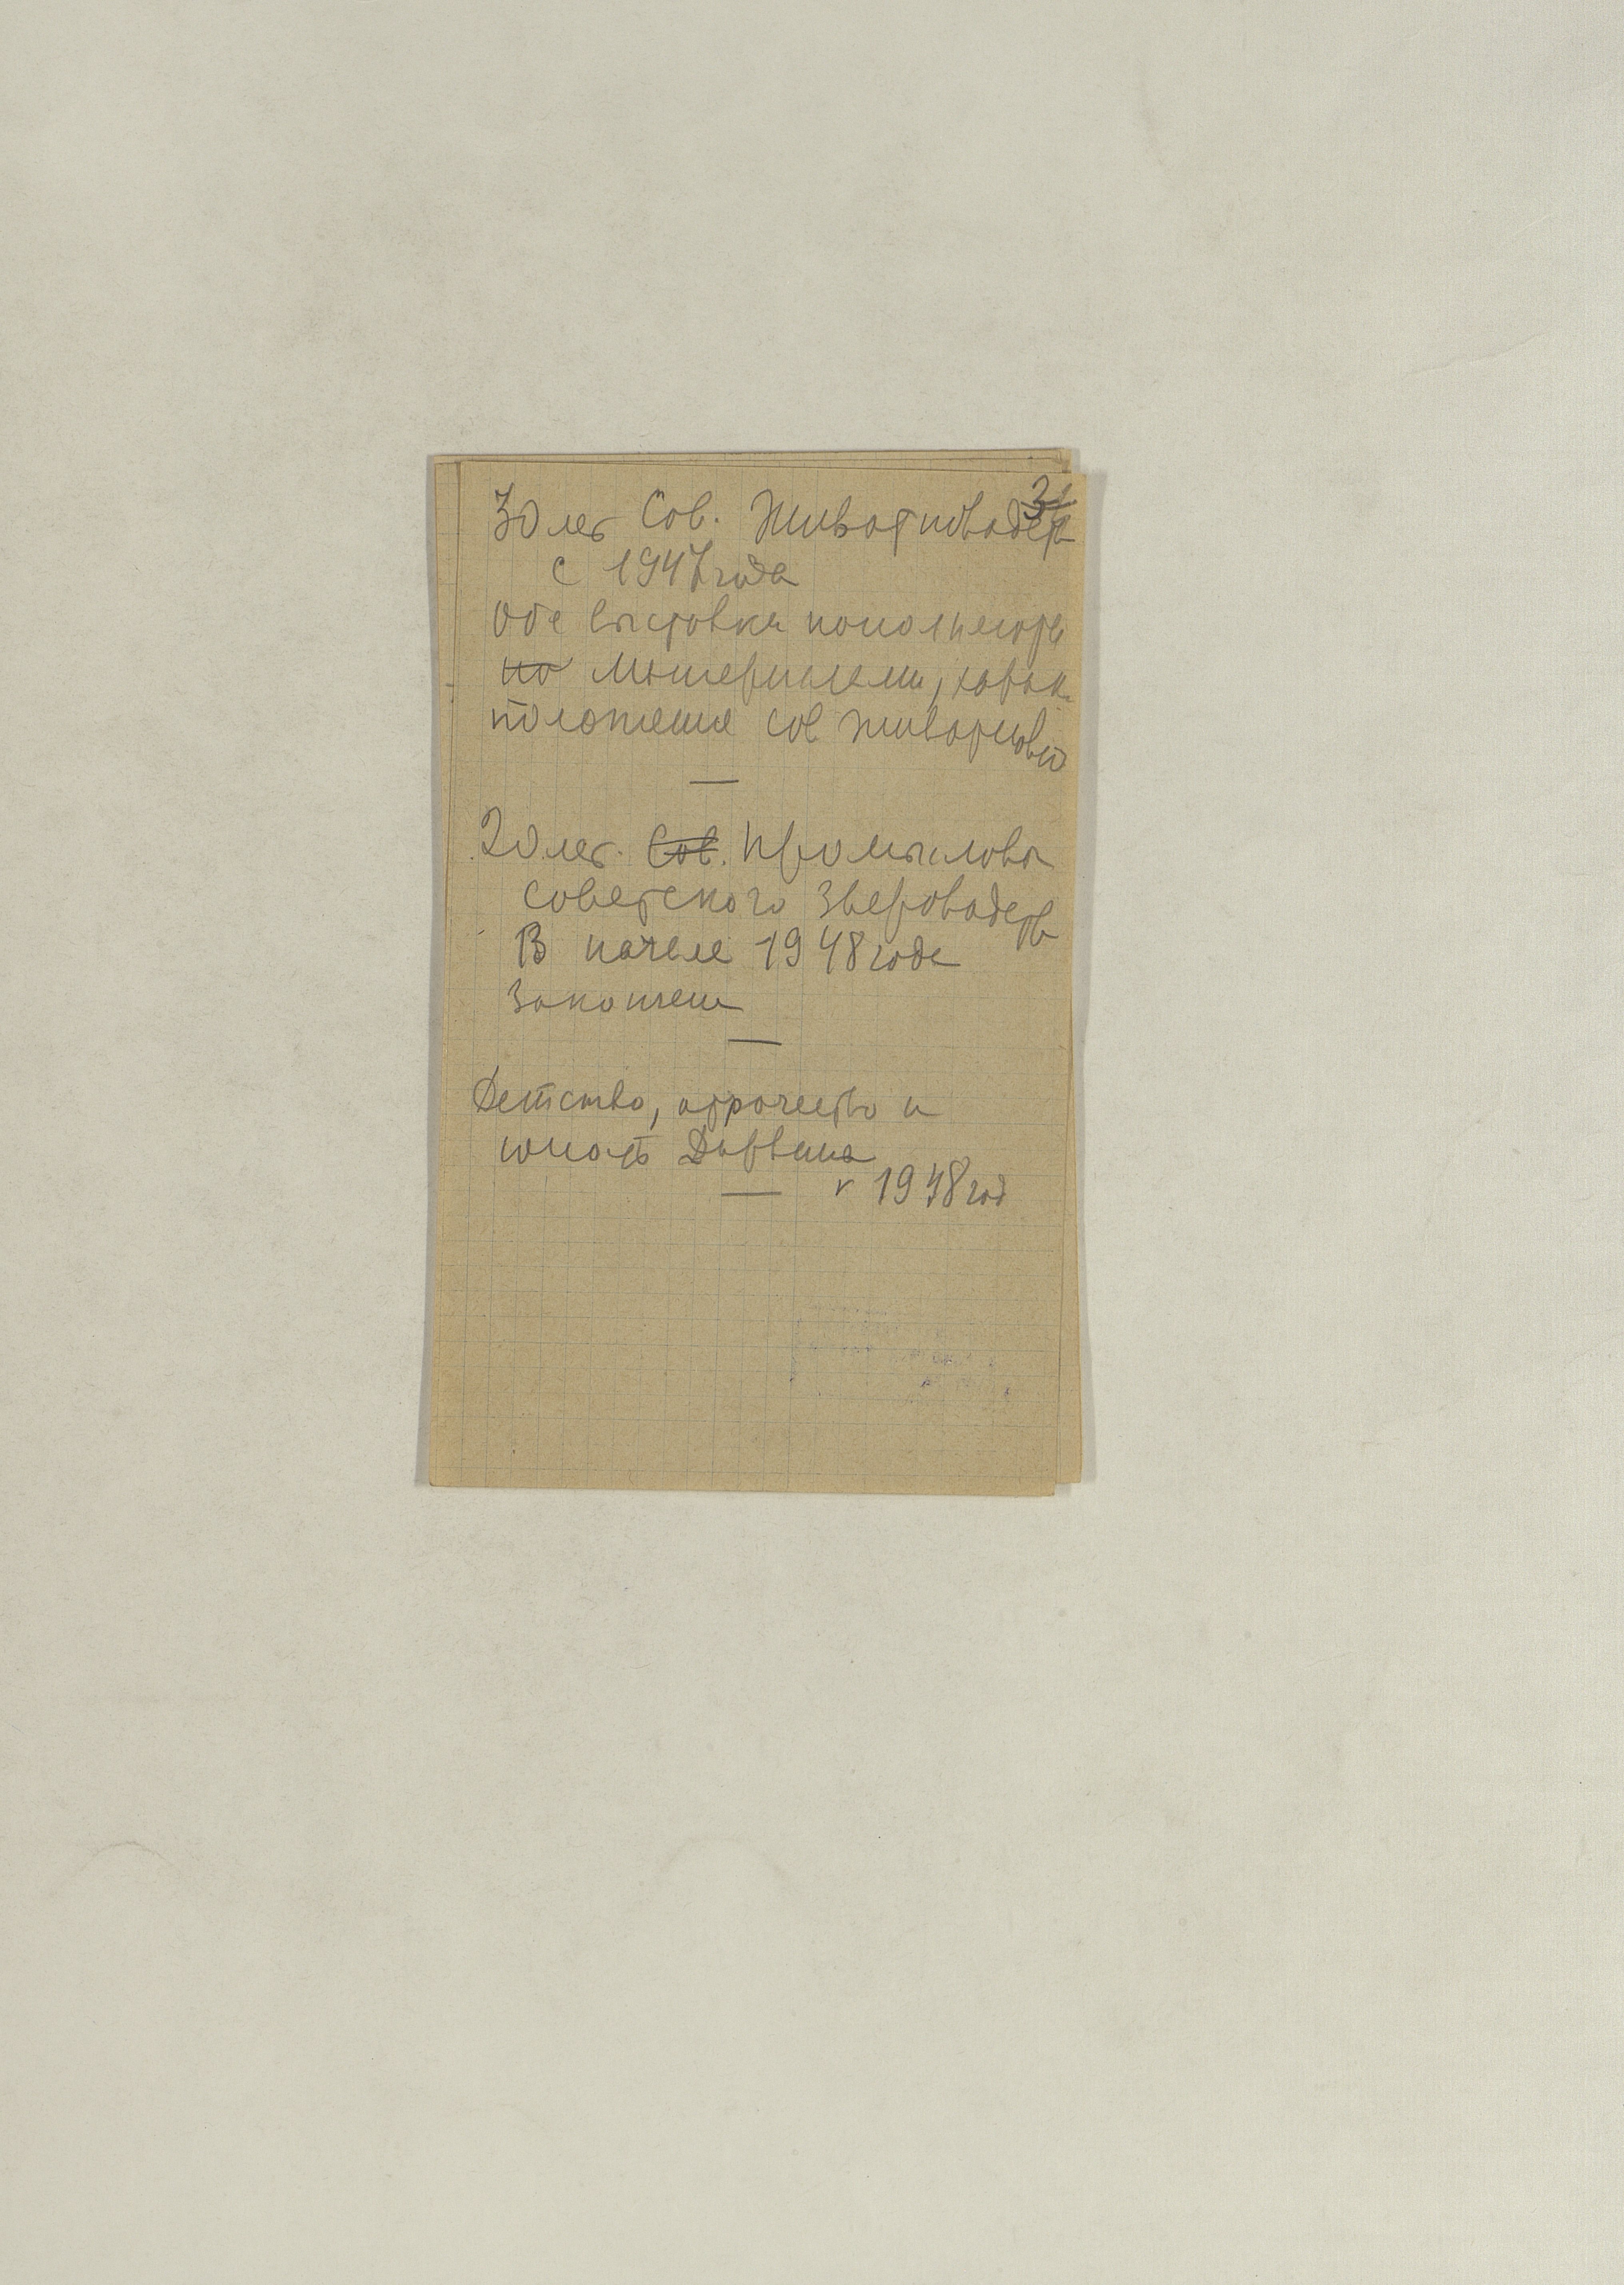 31
30 лет Сов. Животноводств
с 1947 года
Обе выставки пополнить
по материалами, харак.
положение сов животнов
20 лет. Сов. промыслово
советского звероводств
В начале 1948 года
закончен
Детство, отрочество и
юность Дарвина
к 1948 год